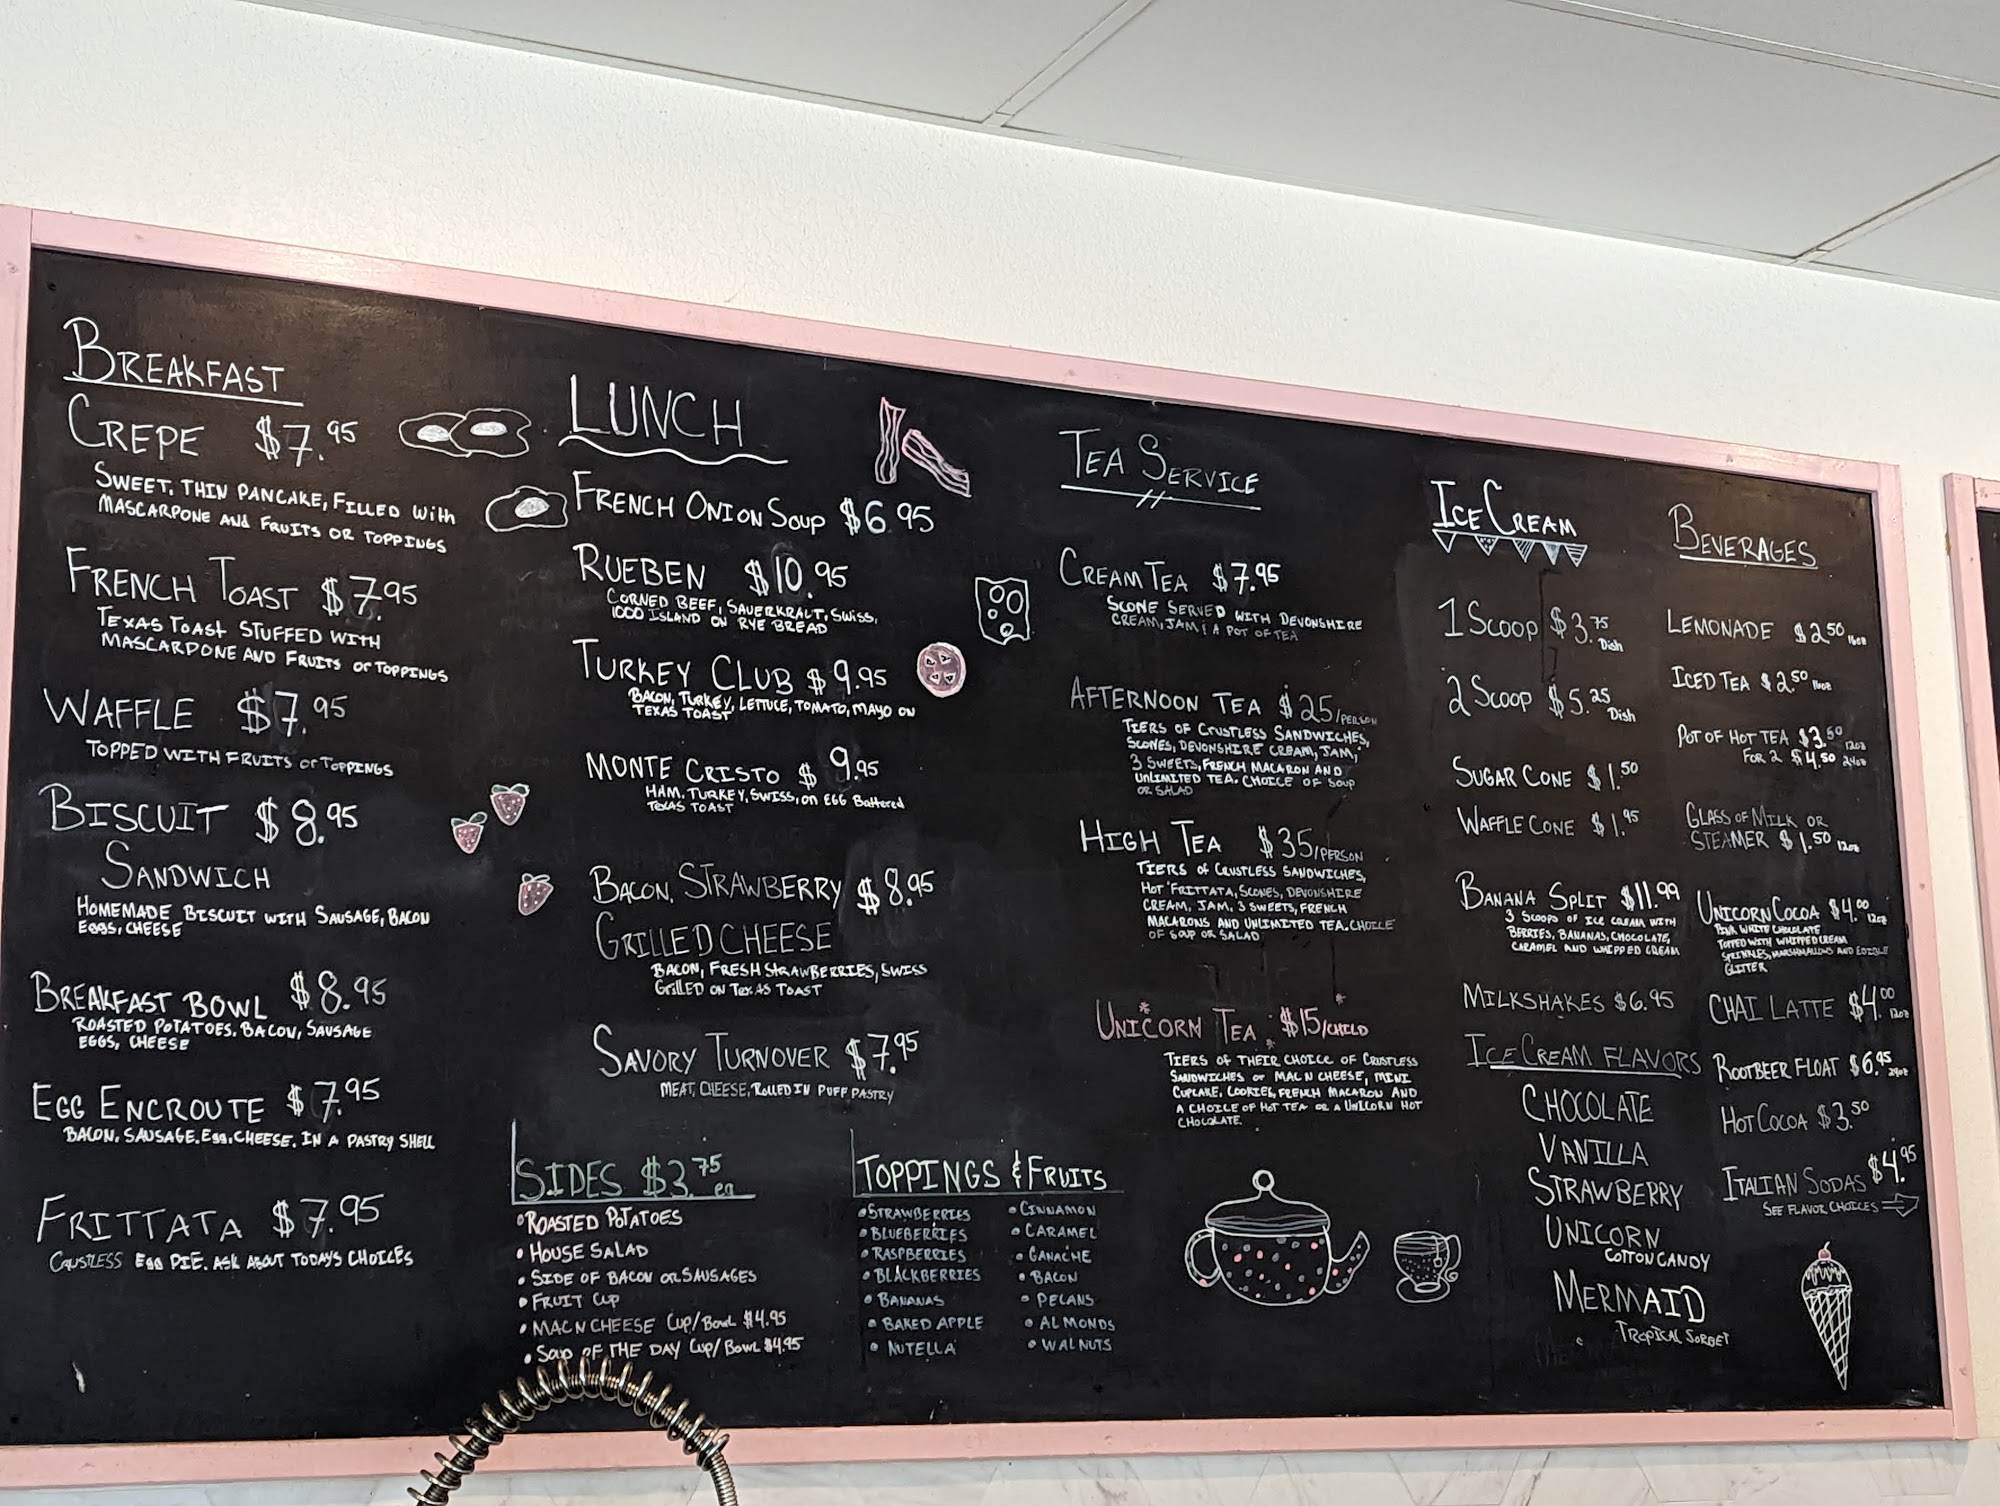 BREAKFAST
CREPE $7.95
SWEET, THIN PANCAKE, FILLED WITH
MASCARPONE AND FRUITS OR TOPPINGS
FRENCH TOAST $7.95
TEXAS TOAST STUFFED WITH
MASCARPONE AND FRUITS or TOPPINGS
WAFFLE $7.95
TOPPED WITH FRUITS or TOPPINGS
BISCUIT $8.95
SANDWICH
HOMEMADE BISCUIT WITH SAUSAGE, BACON
EGGS, CHEESE
BREAKFAST BOWL $8.95
ROASTED POTATOES. BACON, SAUSAGE
EGGS, CHEESE
EGG ENCROUTE $7.95
BACON, SAUSAGE. EGG. CHEESE. IN A PASTRY SHELL
FRITTATA $7.95
CRUSTLESS EGG PIE. ASK ABOUT TODAYS CHOICES
LUNCH
FRENCH ONION SOUP $6.95
RUEBEN $10.95
CORNED BEEF, SAUERKRAUT, SWISS,
1000 ISLAND ON RYE BREAD
TURKEY CLUB $9.95
BACON, TURKEY, LETTUCE, TOMATO, MAYO ON
TEXAS TOAST
MONTE CRISTO $9.95
HAM, TURKEY, SWISS, ON EGG Battered
TEXAS TOAST
BACON, STRAWBERRY $8.95
GRILLED CHEESE
BACON, FRESH STRAWBERRIES, SWISS
GRILLED ON TEXAS TOAST
SAVORY TURNOVER $7.95
MEAT, CHEESE, ROLLED IN PUFF PASTRY
SIDES $3.75 ea
• ROASTED POTATOES
• HOUSE SALAD
• SIDE OF BACON OR SAUSAGES
• FRUIT CUP
• MAC N CHEESE CUP/BOWL $4.95
• SOUP OF THE DAY CUP/BOWL $4.95
TOPPINGS & FRUITS
• STRAWBERRIES
• BLUEBERRIES
• RASPBERRIES
• BLACKBERRIES
• BANANAS
• BAKED APPLE
• NUTELLA
• CINNAMON
• CARAMEL
• GANACHE
• BACON
• PECANS
• ALMONDS
• WALNUTS
TEA SERVICE
CREAM TEA $7.95
SCONE SERVED WITH DEVONSHIRE
CREAM, JAM & A POT OF TEA
AFTERNOON TEA $25/PERSON
TIERS OF CRUSTLESS SANDWICHES,
SCONES, DEVONSHIRE CREAM, JAM,
3 SWEETS, FRENCH MACARON AND
UNLIMITED TEA. CHOICE OF SOUP
OR SALAD
HIGH TEA $35/PERSON
TIERS OF CRUSTLESS SANDWICHES,
HOT FRITTATA, SCONES, DEVONSHIRE
CREAM, JAM, 3 SWEETS, FRENCH
MACARONS AND UNLIMITED TEA. CHOICE
OF SOUP OR SALAD
UNICORN TEA $15/CHILD
TIERS OF THEIR CHOICE OF CRUSTLESS
SANDWICHES or MAC N CHEESE, MINI
CUPCAKE, COOKIES, FRENCH MACARON AND
A CHOICE OF HOT TEA OR A UNICORN HOT
CHOCOLATE.
ICE CREAM
1 SCOOP $3.75
Dish
2 SCOOP $5.25
Dish
SUGAR CONE $1.50
WAFFLE CONE $1.95
BANANA SPLIT $11.99
3 SCOOPS OF ICE CREAM WITH
BERRIES, BANANAS, CHOCOLATE,
CARAMEL AND WHIPPED CREAM
MILKSHAKES $6.95
ICE CREAM FLAVORS
CHOCOLATE
VANILLA
STRAWBERRY
UNICORN
COTTON CANDY
MERMAID
TROPICAL SORBET
BEVERAGES
LEMONADE $2.50 16oz
ICED TEA $2.50 16oz
POT OF HOT TEA $3.50 12oz
FOR 2 $4.50 24oz
GLASS OF MILK OR
STEAMER $1.50 12oz
UNICORN COCOA $4.00 12oz
PINK WHITE CHOCOLATE
TOPPED WITH WHIPPED CREAM
SPRINKLES, MARSHMALLOWS AND EDIBLE
GLITTER
CHAI LATTE $4.00 12oz
ROOTBEER FLOAT $6.95 24oz
HOT COCOA $3.50
ITALIAN SODAS $4.95
SEE FLAVOR CHOICES